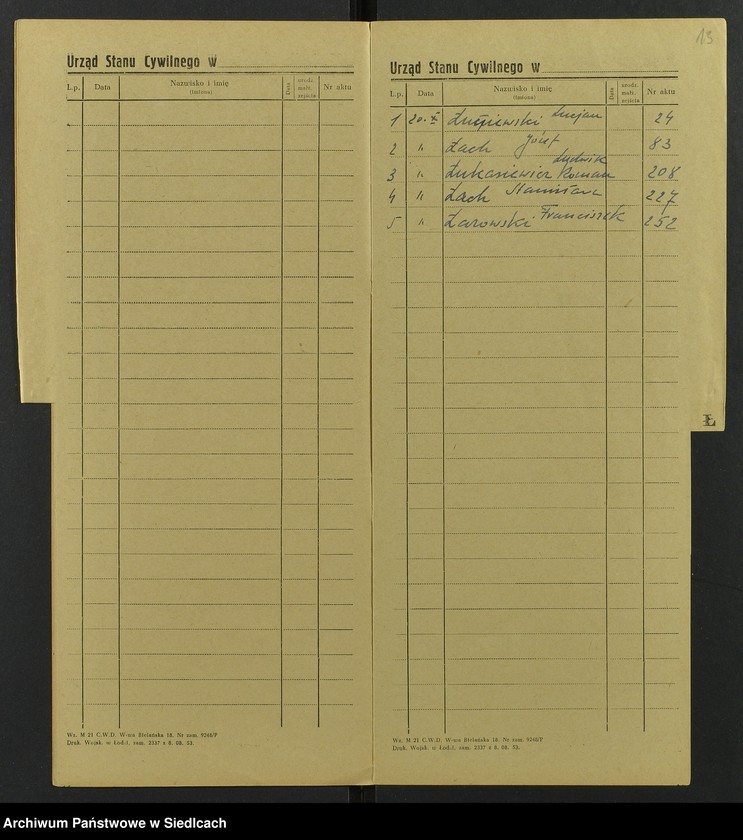 Urząd Stanu Cywilnego w
L.p. Data Nazwisko i imię (imiona) Data urodz. małż. zejścia Nr aktu
Wz. M 21 C.W.D. W-wa Bielańska 18. Nr zam. 9248/P
Druk. Wojsk. w Łodzi, zam. 2337 z 8. 08. 53.
13
Urząd Stanu Cywilnego w
L.p. Data Nazwisko i imię (imiona) Data urodz. małż. zejścia Nr aktu
1 20.X Lucjan 24
2 " Łach Józef 83
3 " Łukasiewicz Ludwik Roman 208
4 " Łach Stanisława 227
5 " Franciszek 252
Ł
Wz. M 21 C.W.D. W-wa Bielańska 18. Nr zam. 9248/P
Druk. Wojsk. w Łodzi, zam. 2337 z 8. 08. 53.
Archiwum Państwowe w Siedlcach